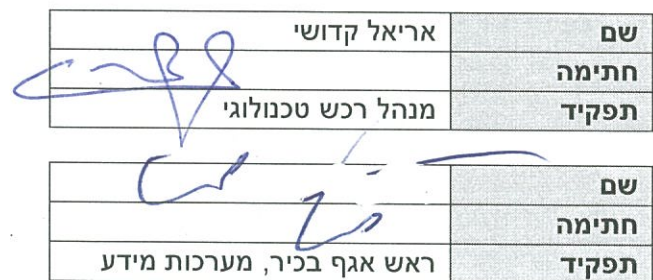 שם אריאל קדושי
חתימה
תפקיד מנהל רכש טכנולוגי
שם
חתימה
תפקיד ראש אגף בכיר, מערכות מידע